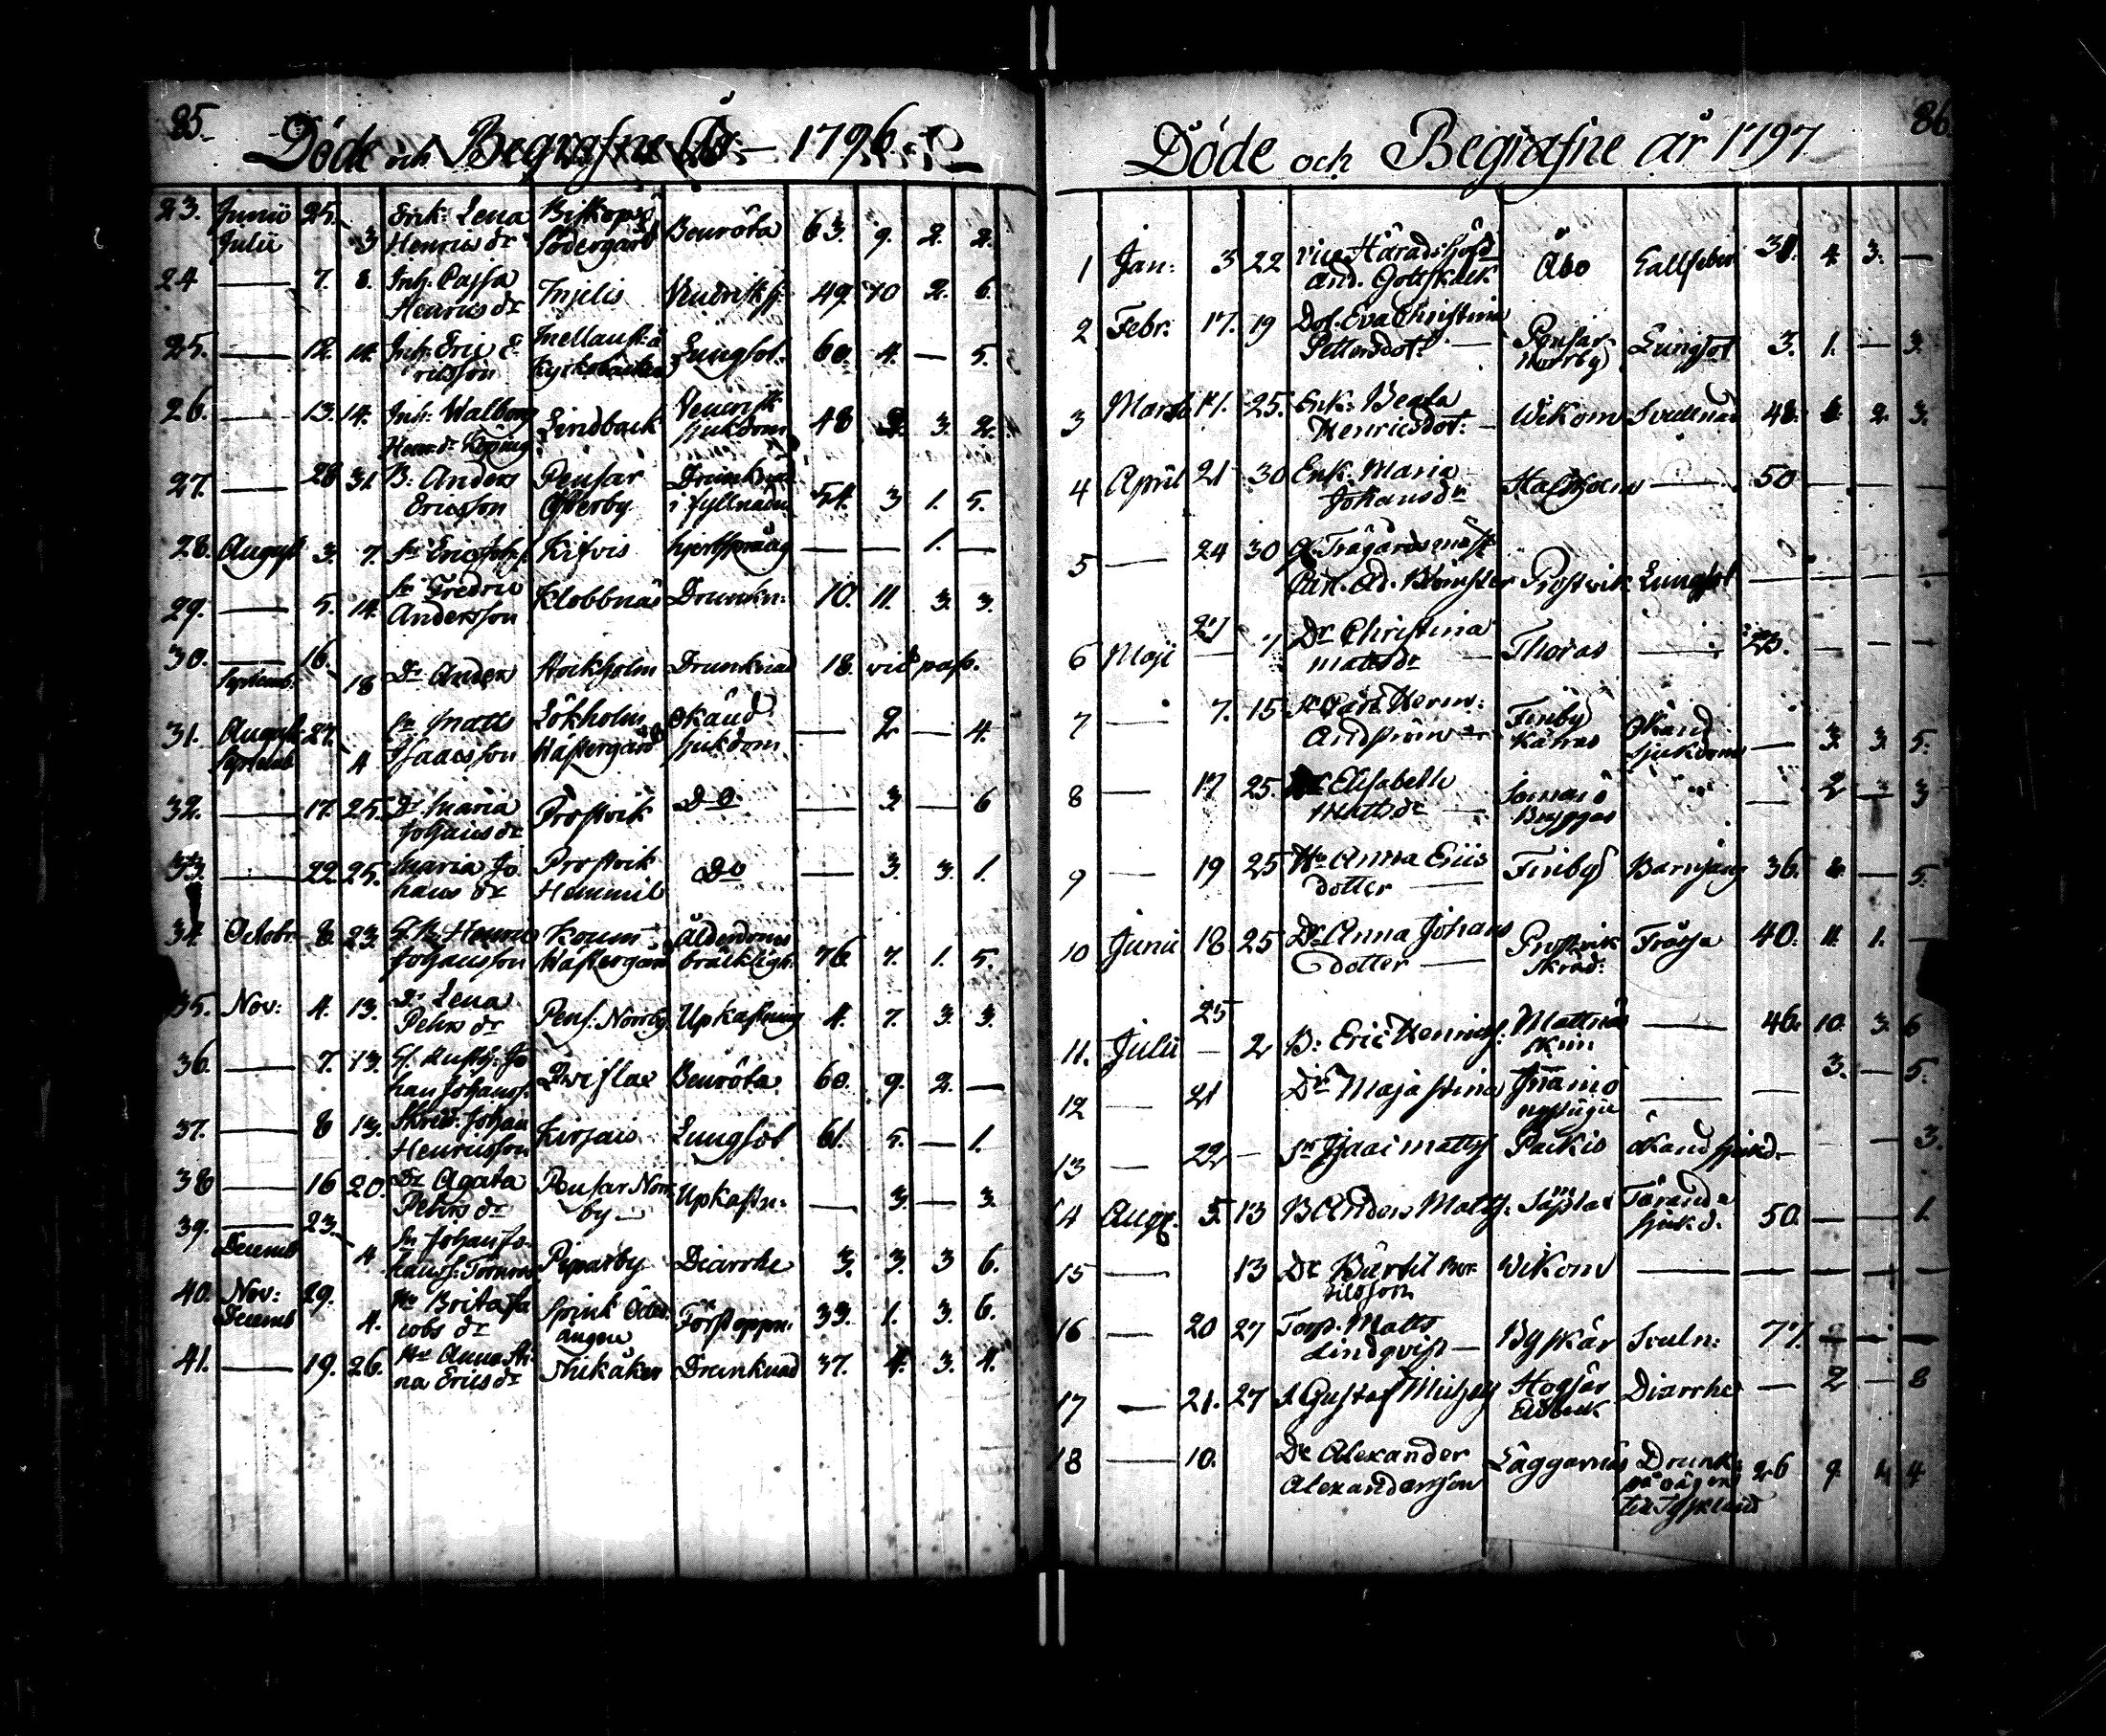 85.
Döde och Begrafne År 1796.
23. Junii 25. Enk: Lena Biskopsö Benröta 63. 9. 2. 2.
Julii 3 Henrics dr Södergård
24 — 7. 8. Inh: Cajsa Injelis 49. 10 2. 6.
Henrics dr
25. — 12. 14. Inh: Eric E- Lungsot. 60. 4. — 5.
ricsson Kyrkobacken
26. — 13. 14. Inh: Walborg Lindback Venerisk 48 3. 2.
sjukdom
27. — 28 31. B: Anders Pensar Drunknad 54. 3 1. 5.
Ericsson Österby i fyllnad
28. August 3. 7. Kifvis hjertsprång — — 1. —
29. — 5. 14. Sn Fredric Klobbnäs Drunkn: 10. 11. 3. 3.
Andersson
30. — 16. Dr Anders Stockholm Drunknad 18. vid pass.
Septemb. 18
31. August 27. Sn Matts Lökholm Okänd — 2 — 4.
Septemb 4 Isaacsson Wästergård sjukdom
32. — 17. 25. Dr Maria Prostvik Do — 3 — 6
Johans dr
33. — 22 25. Maria Jo Prostvik Do — 3. 3. 1.
hans dr Hemmil
34. Octobr 8. 23. Korum Ålderdoms 76. 7. 1. 5.
Johansson Wästergård bräckligh.
35. Nov: 4. 13. Dr Lena Pens. Norrby Upkastning 4. 7. 3. 3.
Pehrs dr
36. — 7. 13. Benröta 60. 9. 2. —
han Johanss.
37. — 8 13. Skräd. Johan Kirjais Lungsot 61. 5. — 1.
Henricsson
38 — 16 20. Dr Agata Pensar Norr Upkastn: — 3. — 3.
Pehrs dr by
39. — 23. Sn Johan Jo- Piparby Diarrhe 3. 3. 3 6.
Decemb 4
40. Nov: 29. Hu Brita Ja Förstoppn. 33. 1. 3. 6.
Decemb 4. cobs dr
41. — 19. 26. Hu Anna Sti- Drunknad 37. 4. 3. 4.
na Erics dr
86
Döde och Begrafne år 1797
1 Jan: 3 22 vice Häradshöfd Åbo Gallfeber 4. 3. —
And. Gottskalk
2 Febr: 17. 19 Dot. Eva Christina Pensar Lungsot 3. 1. — 3.
Pettersdot: Norrby
3 Martii 17. 25. Enk: Beata Wikom Svullnad 48. 2. 3.
Henricsdot:
4 April 21 30 Enk. Maria — 50 — — —
Johans dr
5 — 24 30 G. Trägårdsmäst
Carl. Ad. Blomster Prostvik Lungsot — — — —
6 Maji 27 7 Dr Christina Thoras — 23. — — —
Matts dr
7 — 7. 15 Sn Carl Herm: Finby Okänd — 3. 3. 5.
Kärras sjukdom
8 — 17 25. Dr Elisabeth Sommarö " — 2 3 3
Matts dr Bryggas
9 — 19 25 Hu Anna Erics Finby Barnsäng 36. 8. — 5.
dotter
10 Junii 18 25 Dr Anna Johans Prostvik Trånsja 40. 11. 1. —
dotter Skräd:
11. Julii 25 2 B: Eric Henricss: Mattnäs — 46. 10. 3. 6
12 — 21 Dr Maja Stina — — 3. — 5.
13 — 22 — Sn Isaac Mattss Pärkis okand sjukd. — — 3.
14 Aug. 5. 13 B Anders Matss: Tärande 50. — — 1.
sjukd.
15 — 13 Dr Bärtil Ber- Wikom — — — — —
tilsson
16 — 20 27 Torp. Matts Byskär Svuln: 77. — — —
Lindqvist
17 — 21. 27 S Gustaf Diarrhe — 2 — 8
18 — 10. Dr Alexander Läggarnäs Drunk: 26 9 4
Alexandersson på vägen
till Tyskland